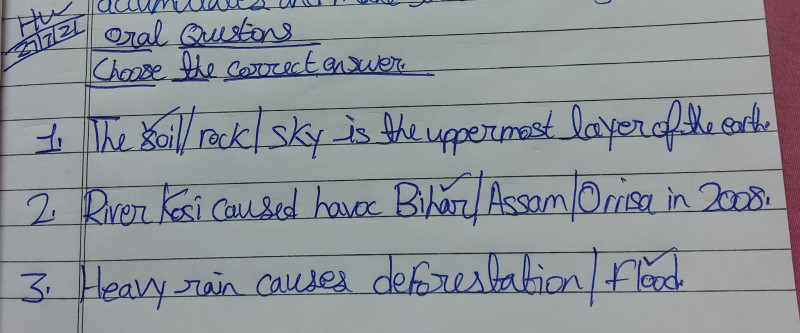 accumulates and make
HW
27/7/21
Oral Questons
Choose the correct answer.
1. The soil/rock/sky is the uppermost layer of the earth.
2. River Kosi caused havoc Bihar/Assam/Orrisa in 2008.
3. Heavy rain causes deforestation/flood.